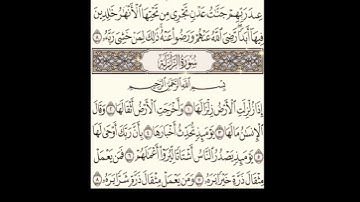 عِندَ رَبِّهِمْ جَنَّٰتُ عَدْنٍ تَجْرِى مِن تَحْتِهَا ٱلْأَنْهَٰرُ خَٰلِدِينَ
فِيهَآ أَبَدًا رَّضِىَ ٱللَّهُ عَنْهُمْ وَرَضُوا۟ عَنْهُ ذَٰلِكَ لِمَنْ خَشِىَ رَبَّهُۥ ٨
سُورَةُ الزَّلْزَلَةِ
بِسْمِ ٱللَّهِ ٱلرَّحْمَٰنِ ٱلرَّحِيمِ
إِذَا زُلْزِلَتِ ٱلْأَرْضُ زِلْزَالَهَا ١ وَأَخْرَجَتِ ٱلْأَرْضُ أَثْقَالَهَا ٢ وَقَالَ
ٱلْإِنسَٰنُ مَا لَهَا ٣ يَوْمَئِذٍ تُحَدِّثُ أَخْبَارَهَا ٤ بِأَنَّ رَبَّكَ أَوْحَىٰ لَهَا
٥ يَوْمَئِذٍ يَصْدُرُ ٱلنَّاسُ أَشْتَاتًا لِّيُرَوْا۟ أَعْمَٰلَهُمْ ٦ فَمَن يَعْمَلْ
مِثْقَالَ ذَرَّةٍ خَيْرًا يَرَهُۥ ٧ وَمَن يَعْمَلْ مِثْقَالَ ذَرَّةٍ شَرًّا يَرَهُۥ ٨